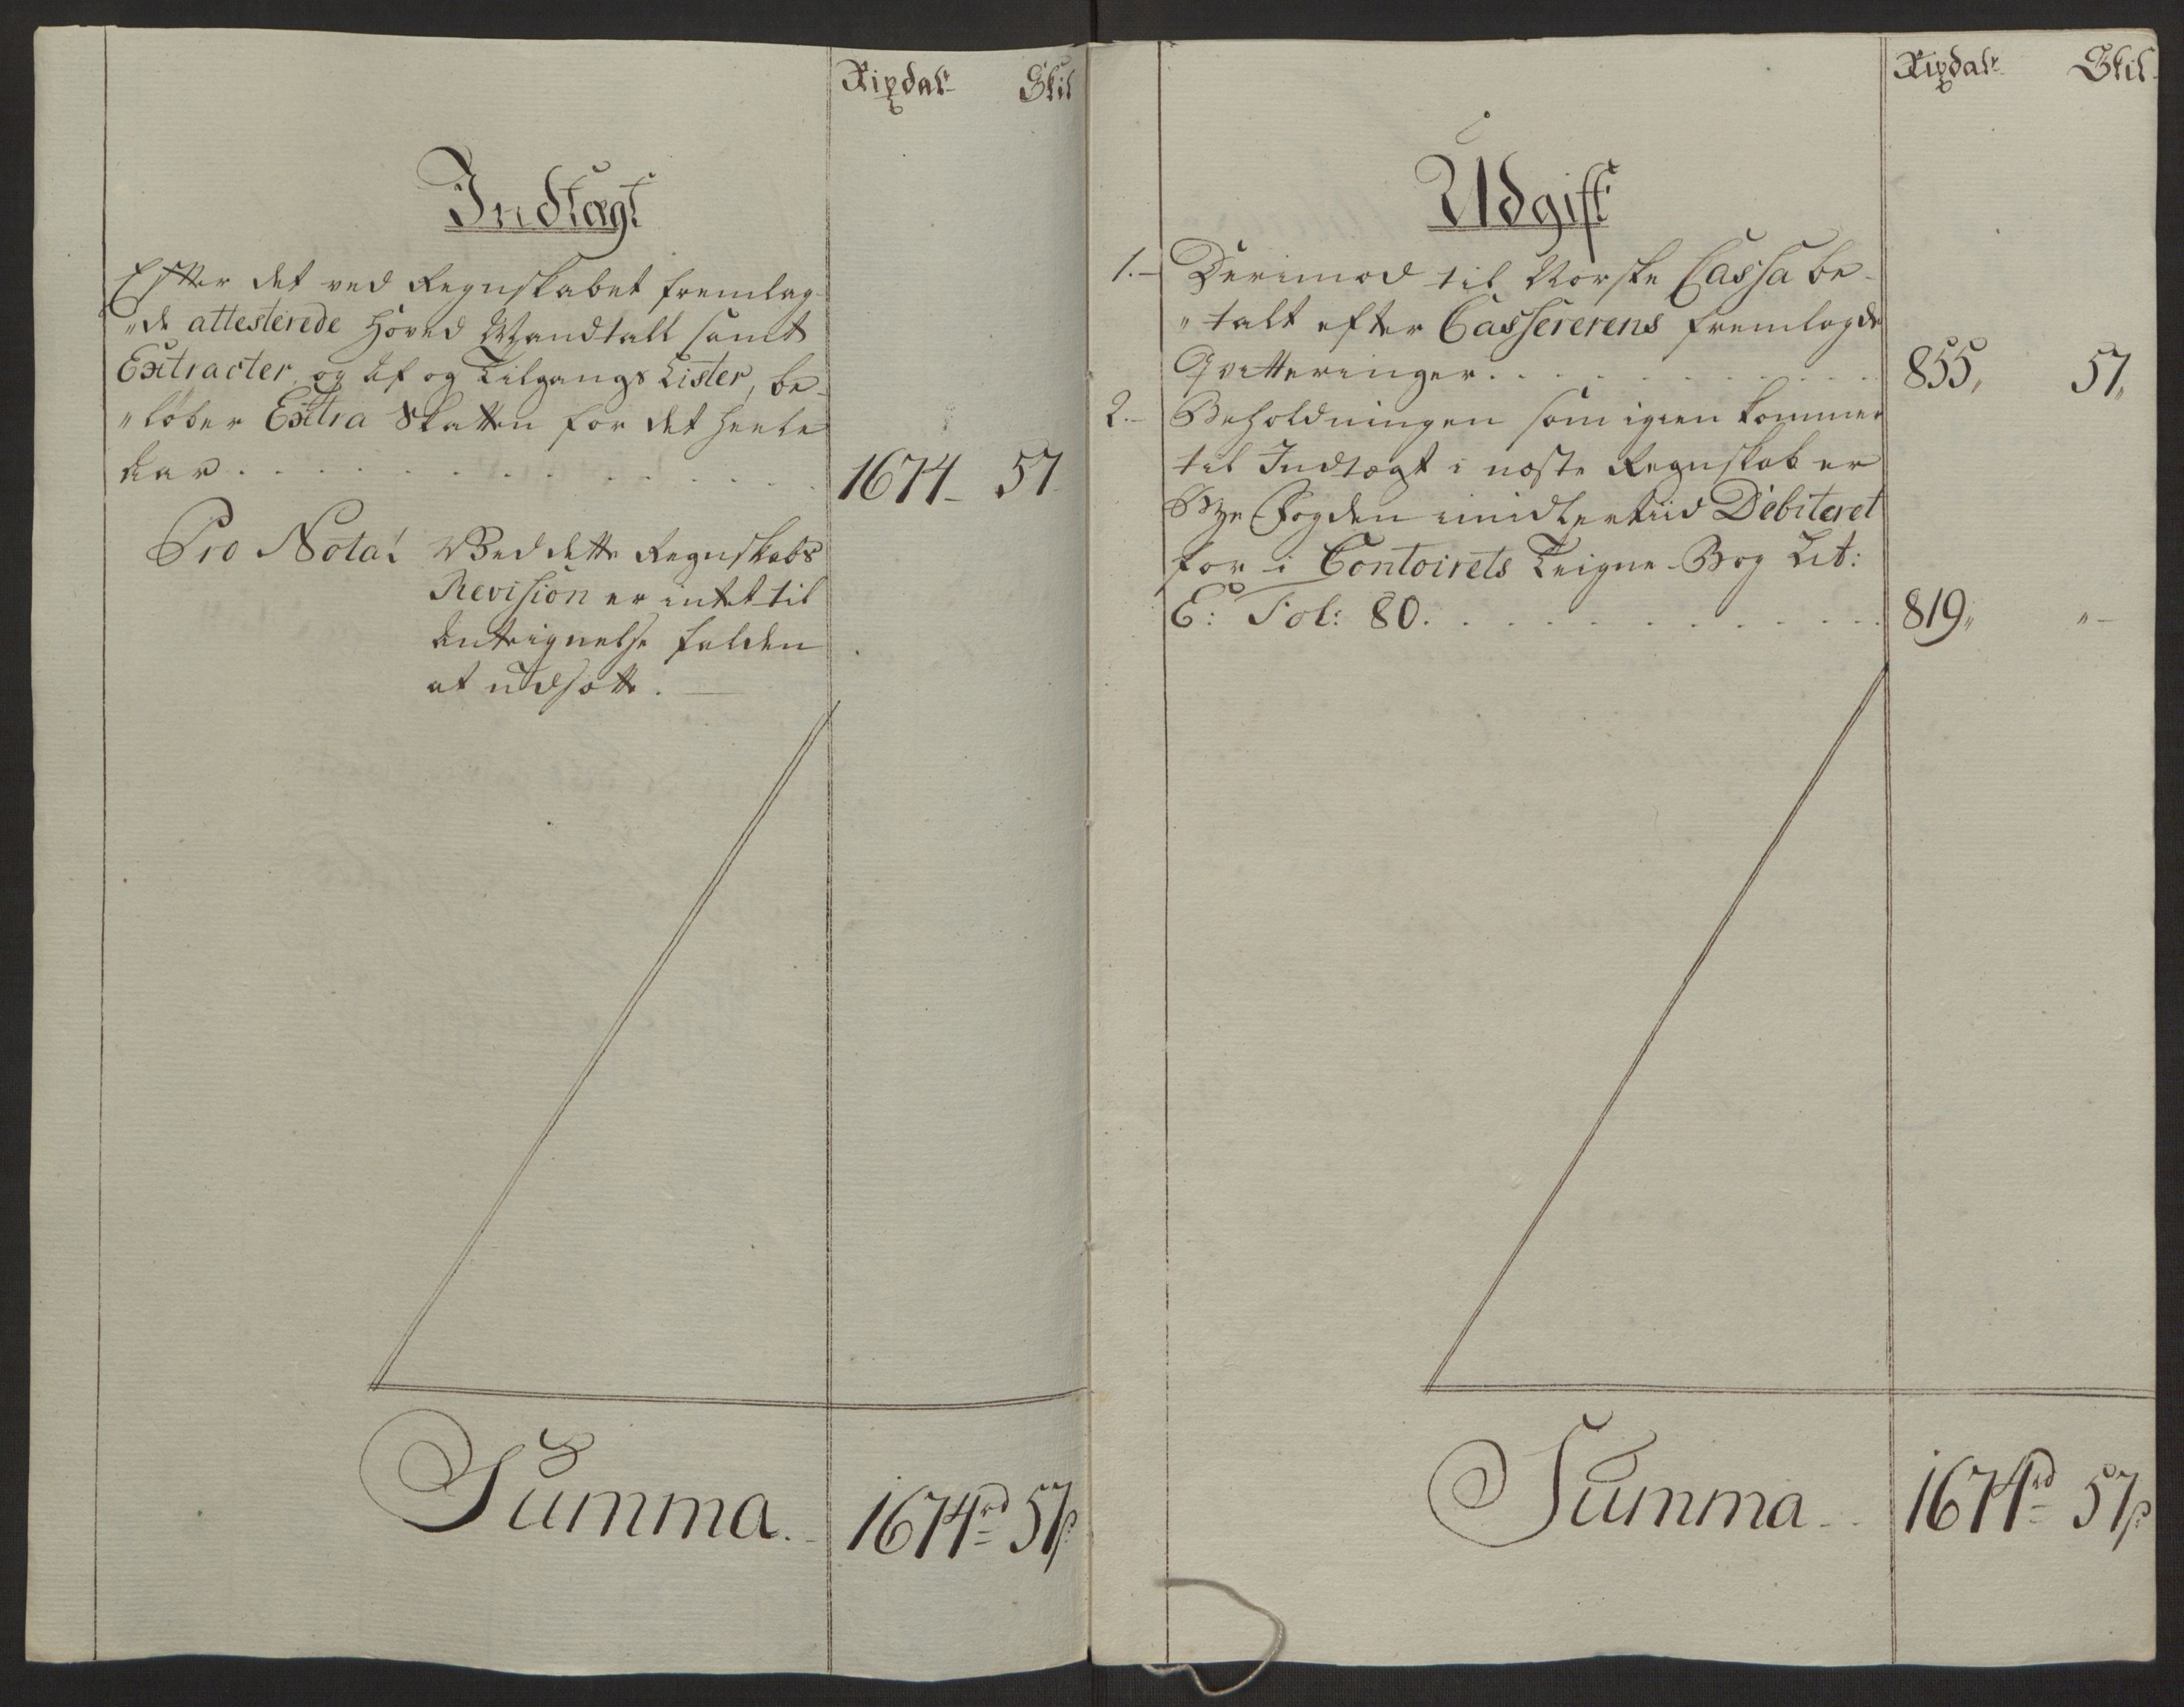 Rixdalr Skil
Indtægt
Efter det ved Regnskabet fremlag-
"de attesterede Hoved Mandtall samt
Extracter og Af og Tilgangs Lister, be-
"løber Extra Skatten for det heele
Aar . . . . . . . . . . . 1674 - 57
Pro Nota! Ved dette Regnskabs
Revision er intet til
Antegnelse falden
at udsætte.
Summa . . 1674rd 57s
Rixdalr Skil
Udgift
1. Derimod til Norske Cassa be-
"talt efter Cassererens fremlagde
Qvitteringer . . . . . . . 855, 57,
2. Beholdningen som igien kommer
til Indtægt i næste Regnskab er
Bye Fogden imidlertiid Debiteret
for i Contoirets Teigne-Bog Lit:
E: Fol: 80. . . . . . . . . 819, " -
Summa . . 1674rd 57s